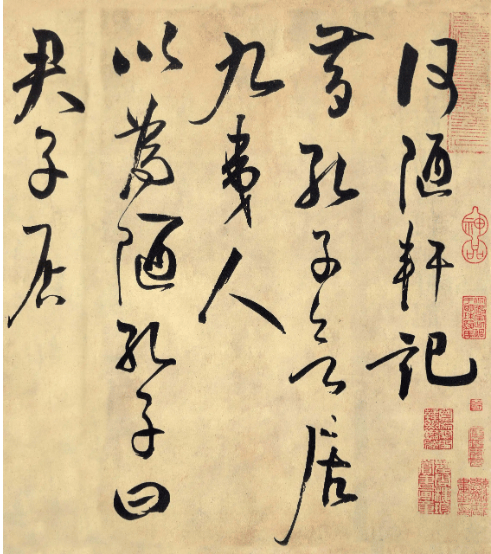 神品
何陋軒記
昔孔子欲居
九夷人
以為陋孔子曰
君子居